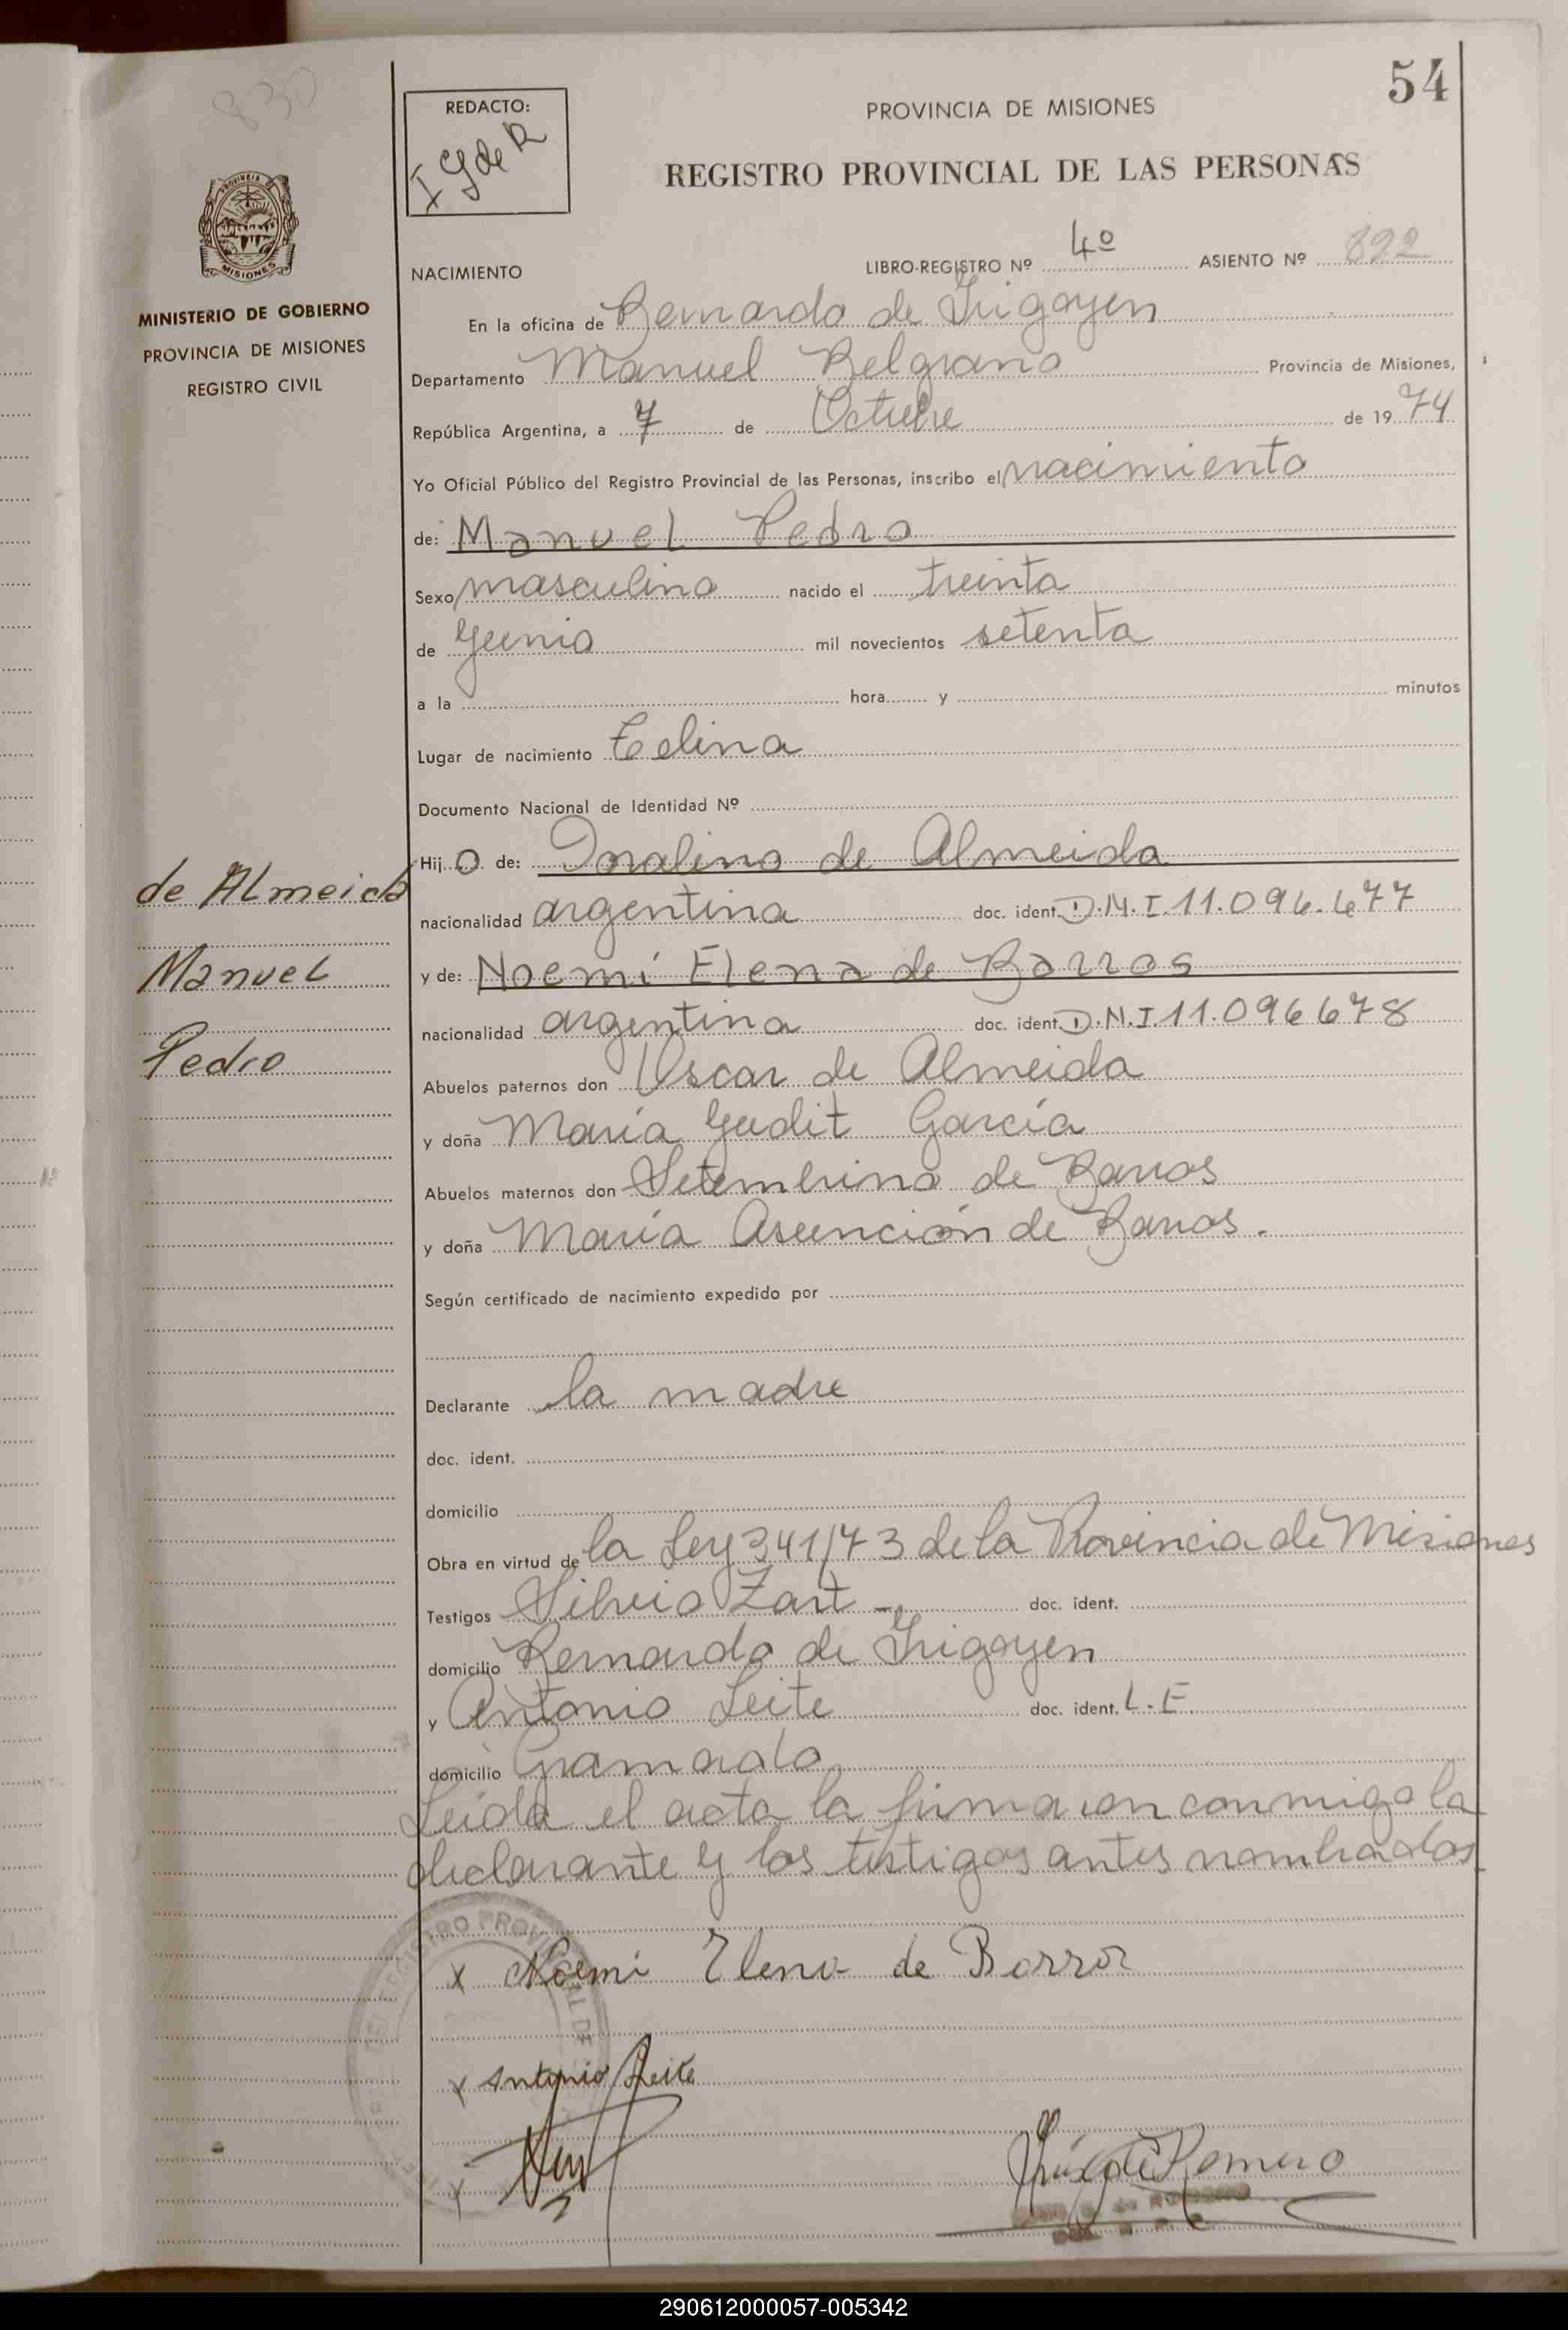 54
830
REDACTO:
I G de R
PROVINCIA DE MISIONES
REGISTRO PROVINCIAL DE LAS PERSONAS
PROVINCIA DE
MISIONES
MINISTERIO DE GOBIERNO
PROVINCIA DE MISIONES
REGISTRO CIVIL
NACIMIENTO LIBRO-REGISTRO Nº 4º ASIENTO Nº 892
En la oficina de Bernardo de Irigoyen
Departamento Manuel Belgrano Provincia de Misiones,
República Argentina, a 7 de Octubre de 1974
Yo Oficial Público del Registro Provincial de las Personas, inscribo el nacimiento
de: Manuel Pedro
Sexo masculino nacido el treinta
de Junio mil novecientos setenta
a la hora y minutos
Lugar de nacimiento
Documento Nacional de Identidad Nº
Hijo de: de Almeida
de Almeida
nacionalidad argentina doc. ident. D.N.I.11.096.677
Manuel
y de: Noemí Elena de Barros
nacionalidad argentina doc. ident. D.N.I.11.096678
Pedro
Abuelos paternos don Oscar de Almeida
y doña María Judit García
Abuelos maternos don Setembrino de Barros
y doña María Asunción de Barros.
Según certificado de nacimiento expedido por
Declarante la madre
doc. ident.
domicilio
Obra en virtud de la Ley 341/73 de la Provincia de Misiones
Testigos Silvio Zart - doc. ident.
domicilio Bernardo de Irigoyen
y Antonio Leite doc. ident. L.E.
domicilio Gramado
Leida el acta la firmaron conmigo la
declarante y los testigos antes nombrados
x Noemi Elena de Barros
x Antonio Leite
x
G de Romero
290612000057-005342